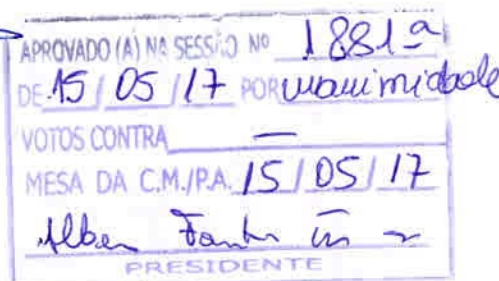 APROVADO (A) NA SESSÃO Nº 1881ª
DE 15 / 05 / 17 POR unanimidade
VOTOS CONTRA —
MESA DA C.M./P.A. 15 / 05 / 17
PRESIDENTE